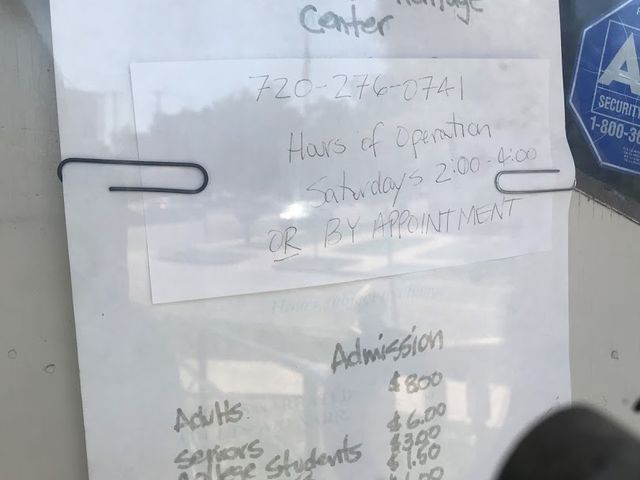 Heritage
Center
720-276-0741
Hours of Operation
Saturdays 2:00-4:00
OR BY APPOINTMENT
Admission
Adults $8.00
Seniors $6.00
College Students $3.00
$1.50
SECURITY
1-800-3